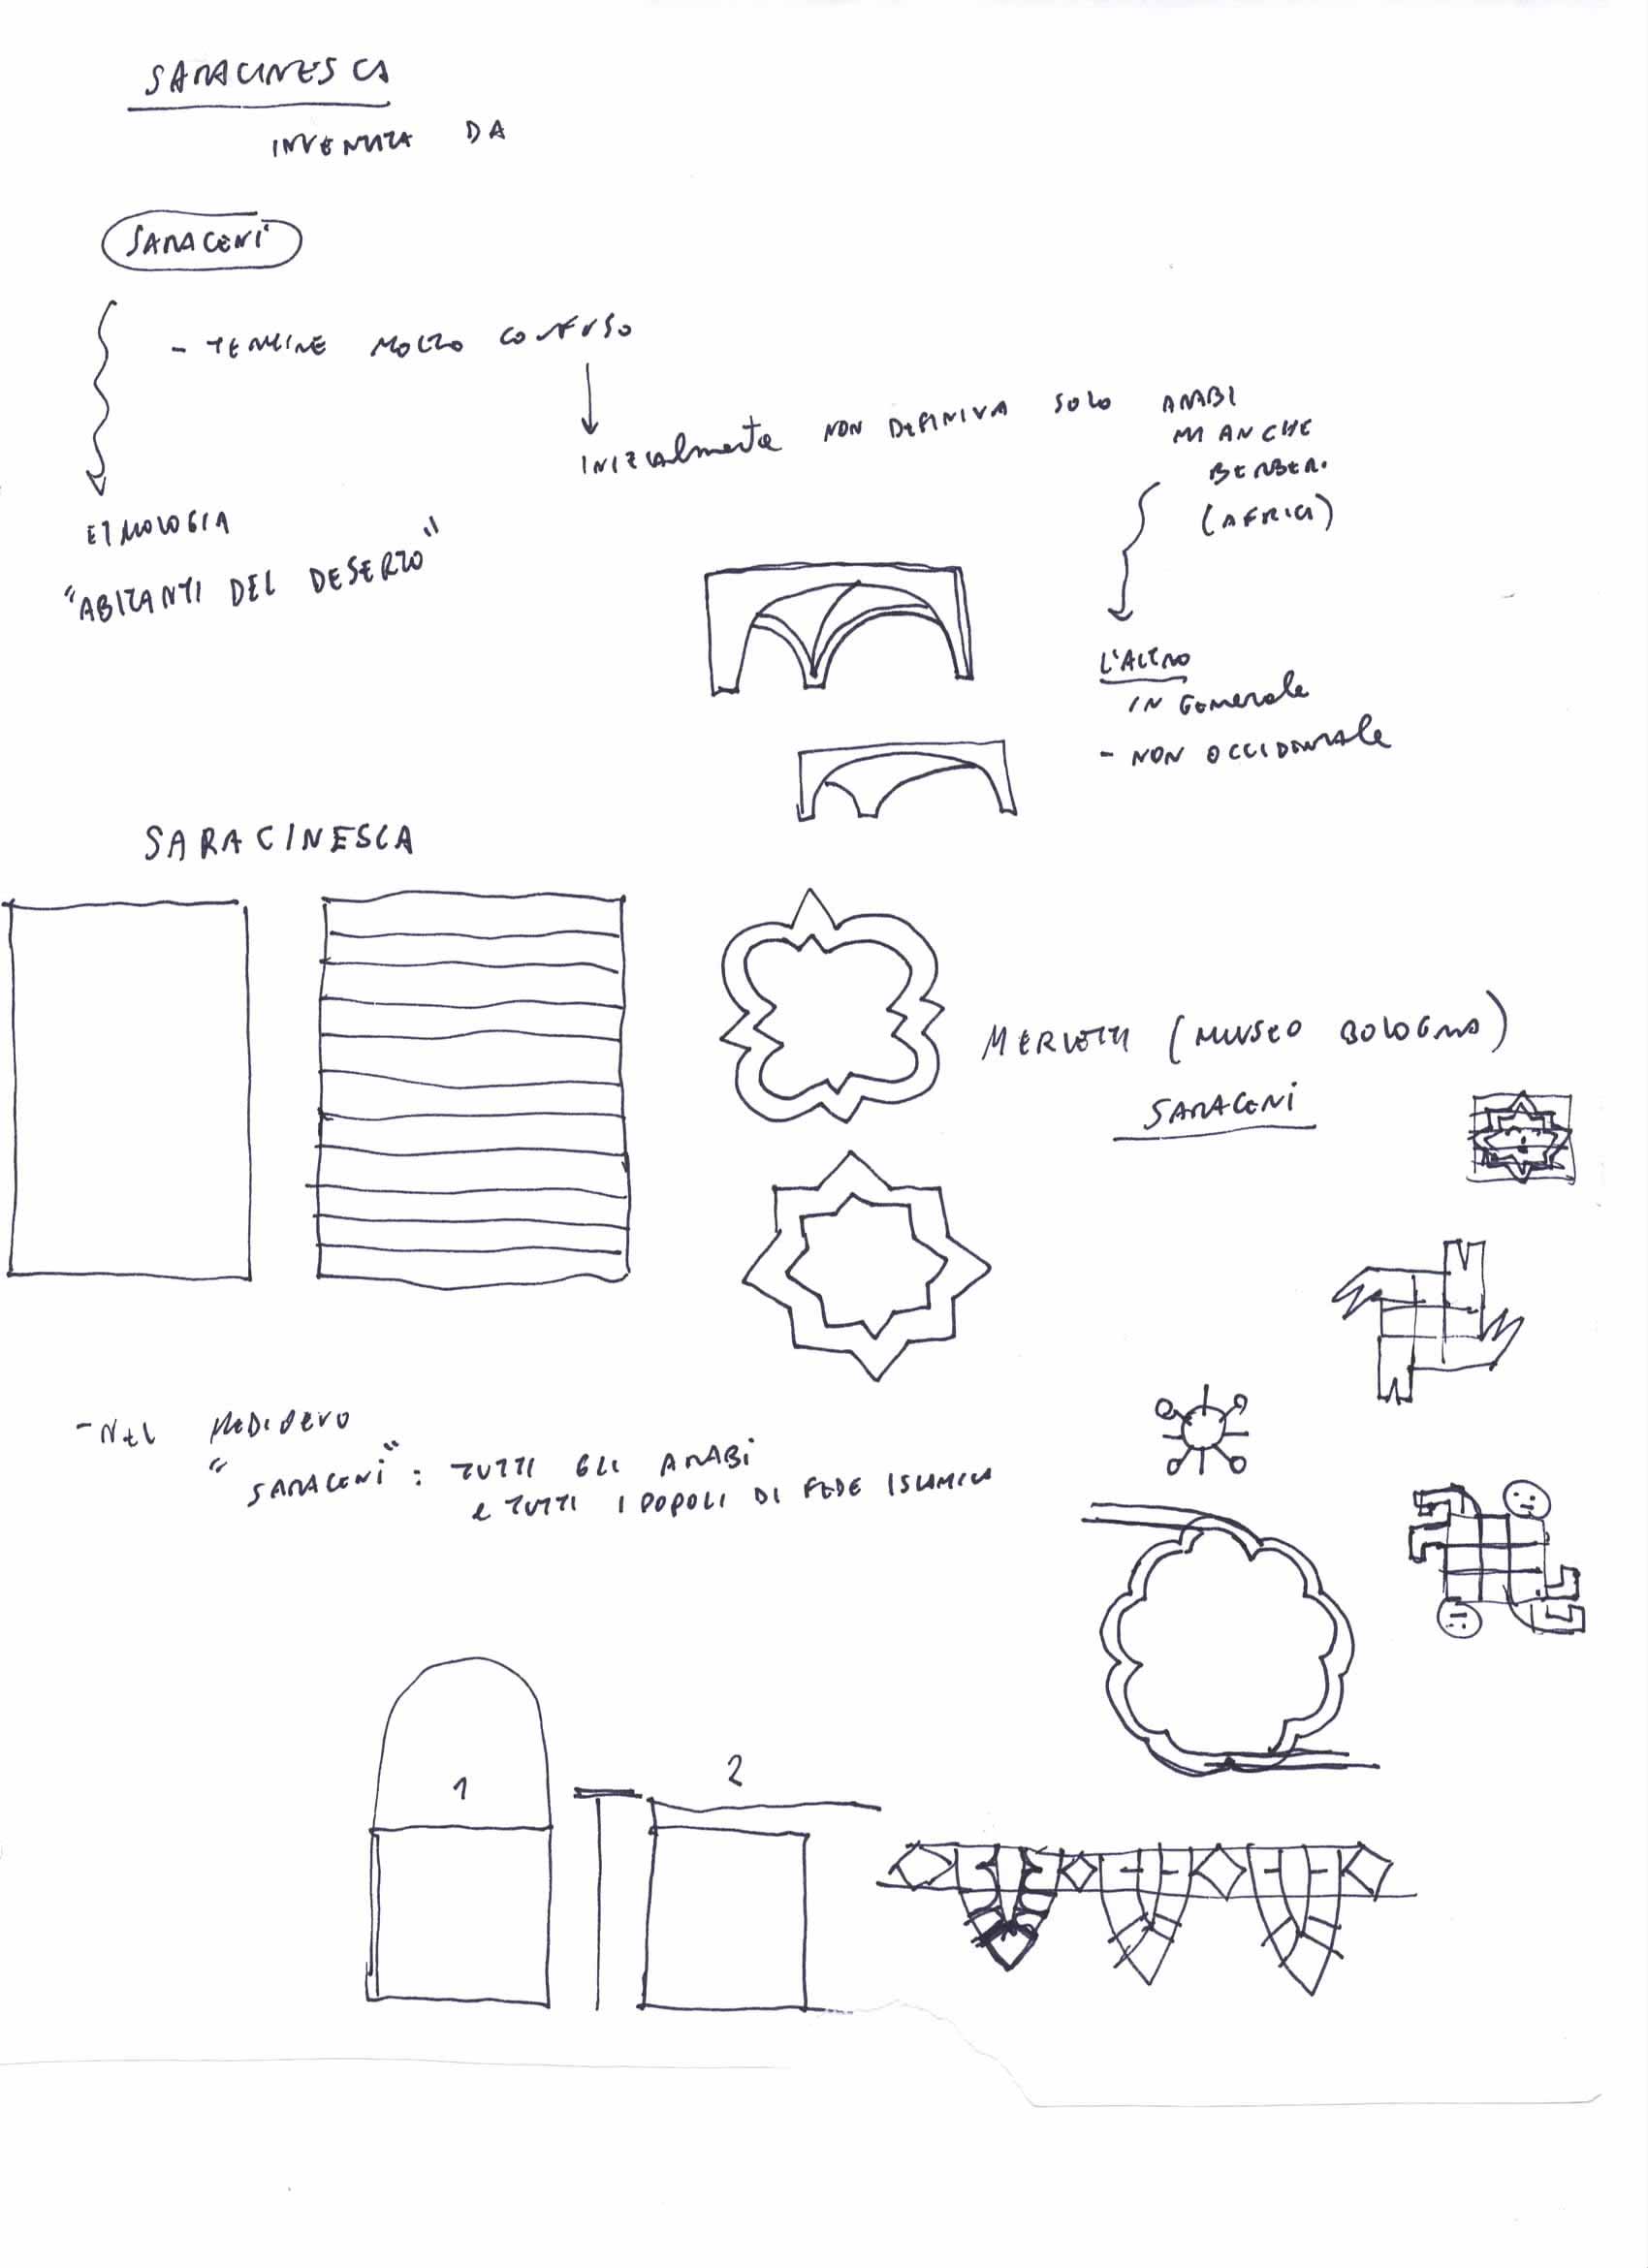 SARACINESCA
INVENTATA DA
SARACENI
- TERMINE MOLTO CONFUSO
INIZIALmente NON DEFINIVA SOLO ARABI
MA ANCHE
BERBERI
(AFRICA)
ETIMOLOGIA
"ABITANTI DEL DESERTO"
L'ALTRO
IN GENERALE
- NON OCCIDENTALE
SARACINESCA
MERLETTI (MUSEO BOLOGNA)
SARACENI
- NEL MEDIOEVO
"SARACENI": TUTTI GLI ARABI
e TUTTI I POPOLI DI FEDE ISLAMICA
1
2